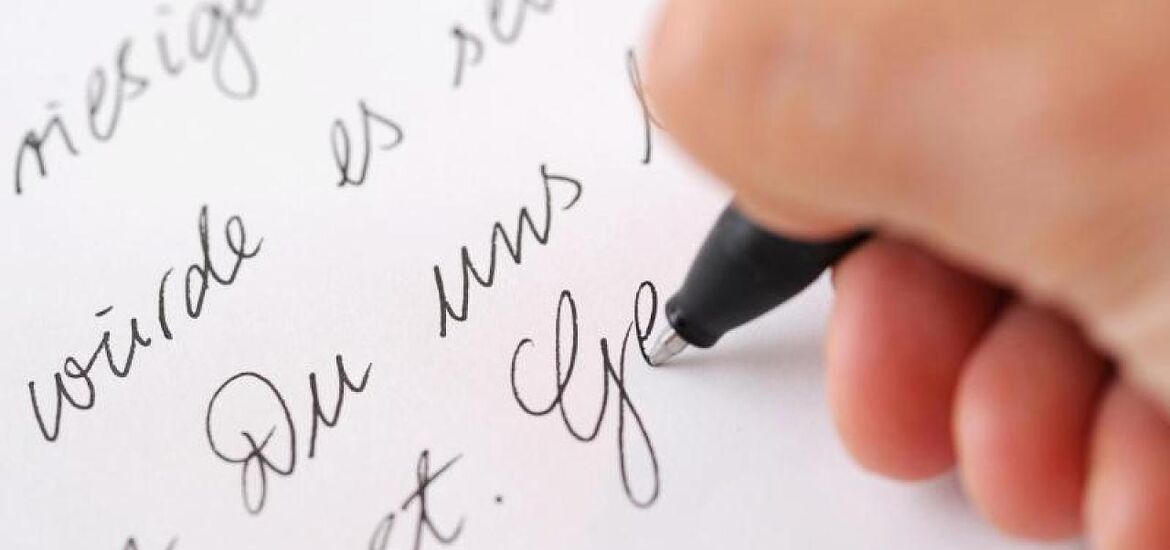 riesig
würde es
Du uns
Ge